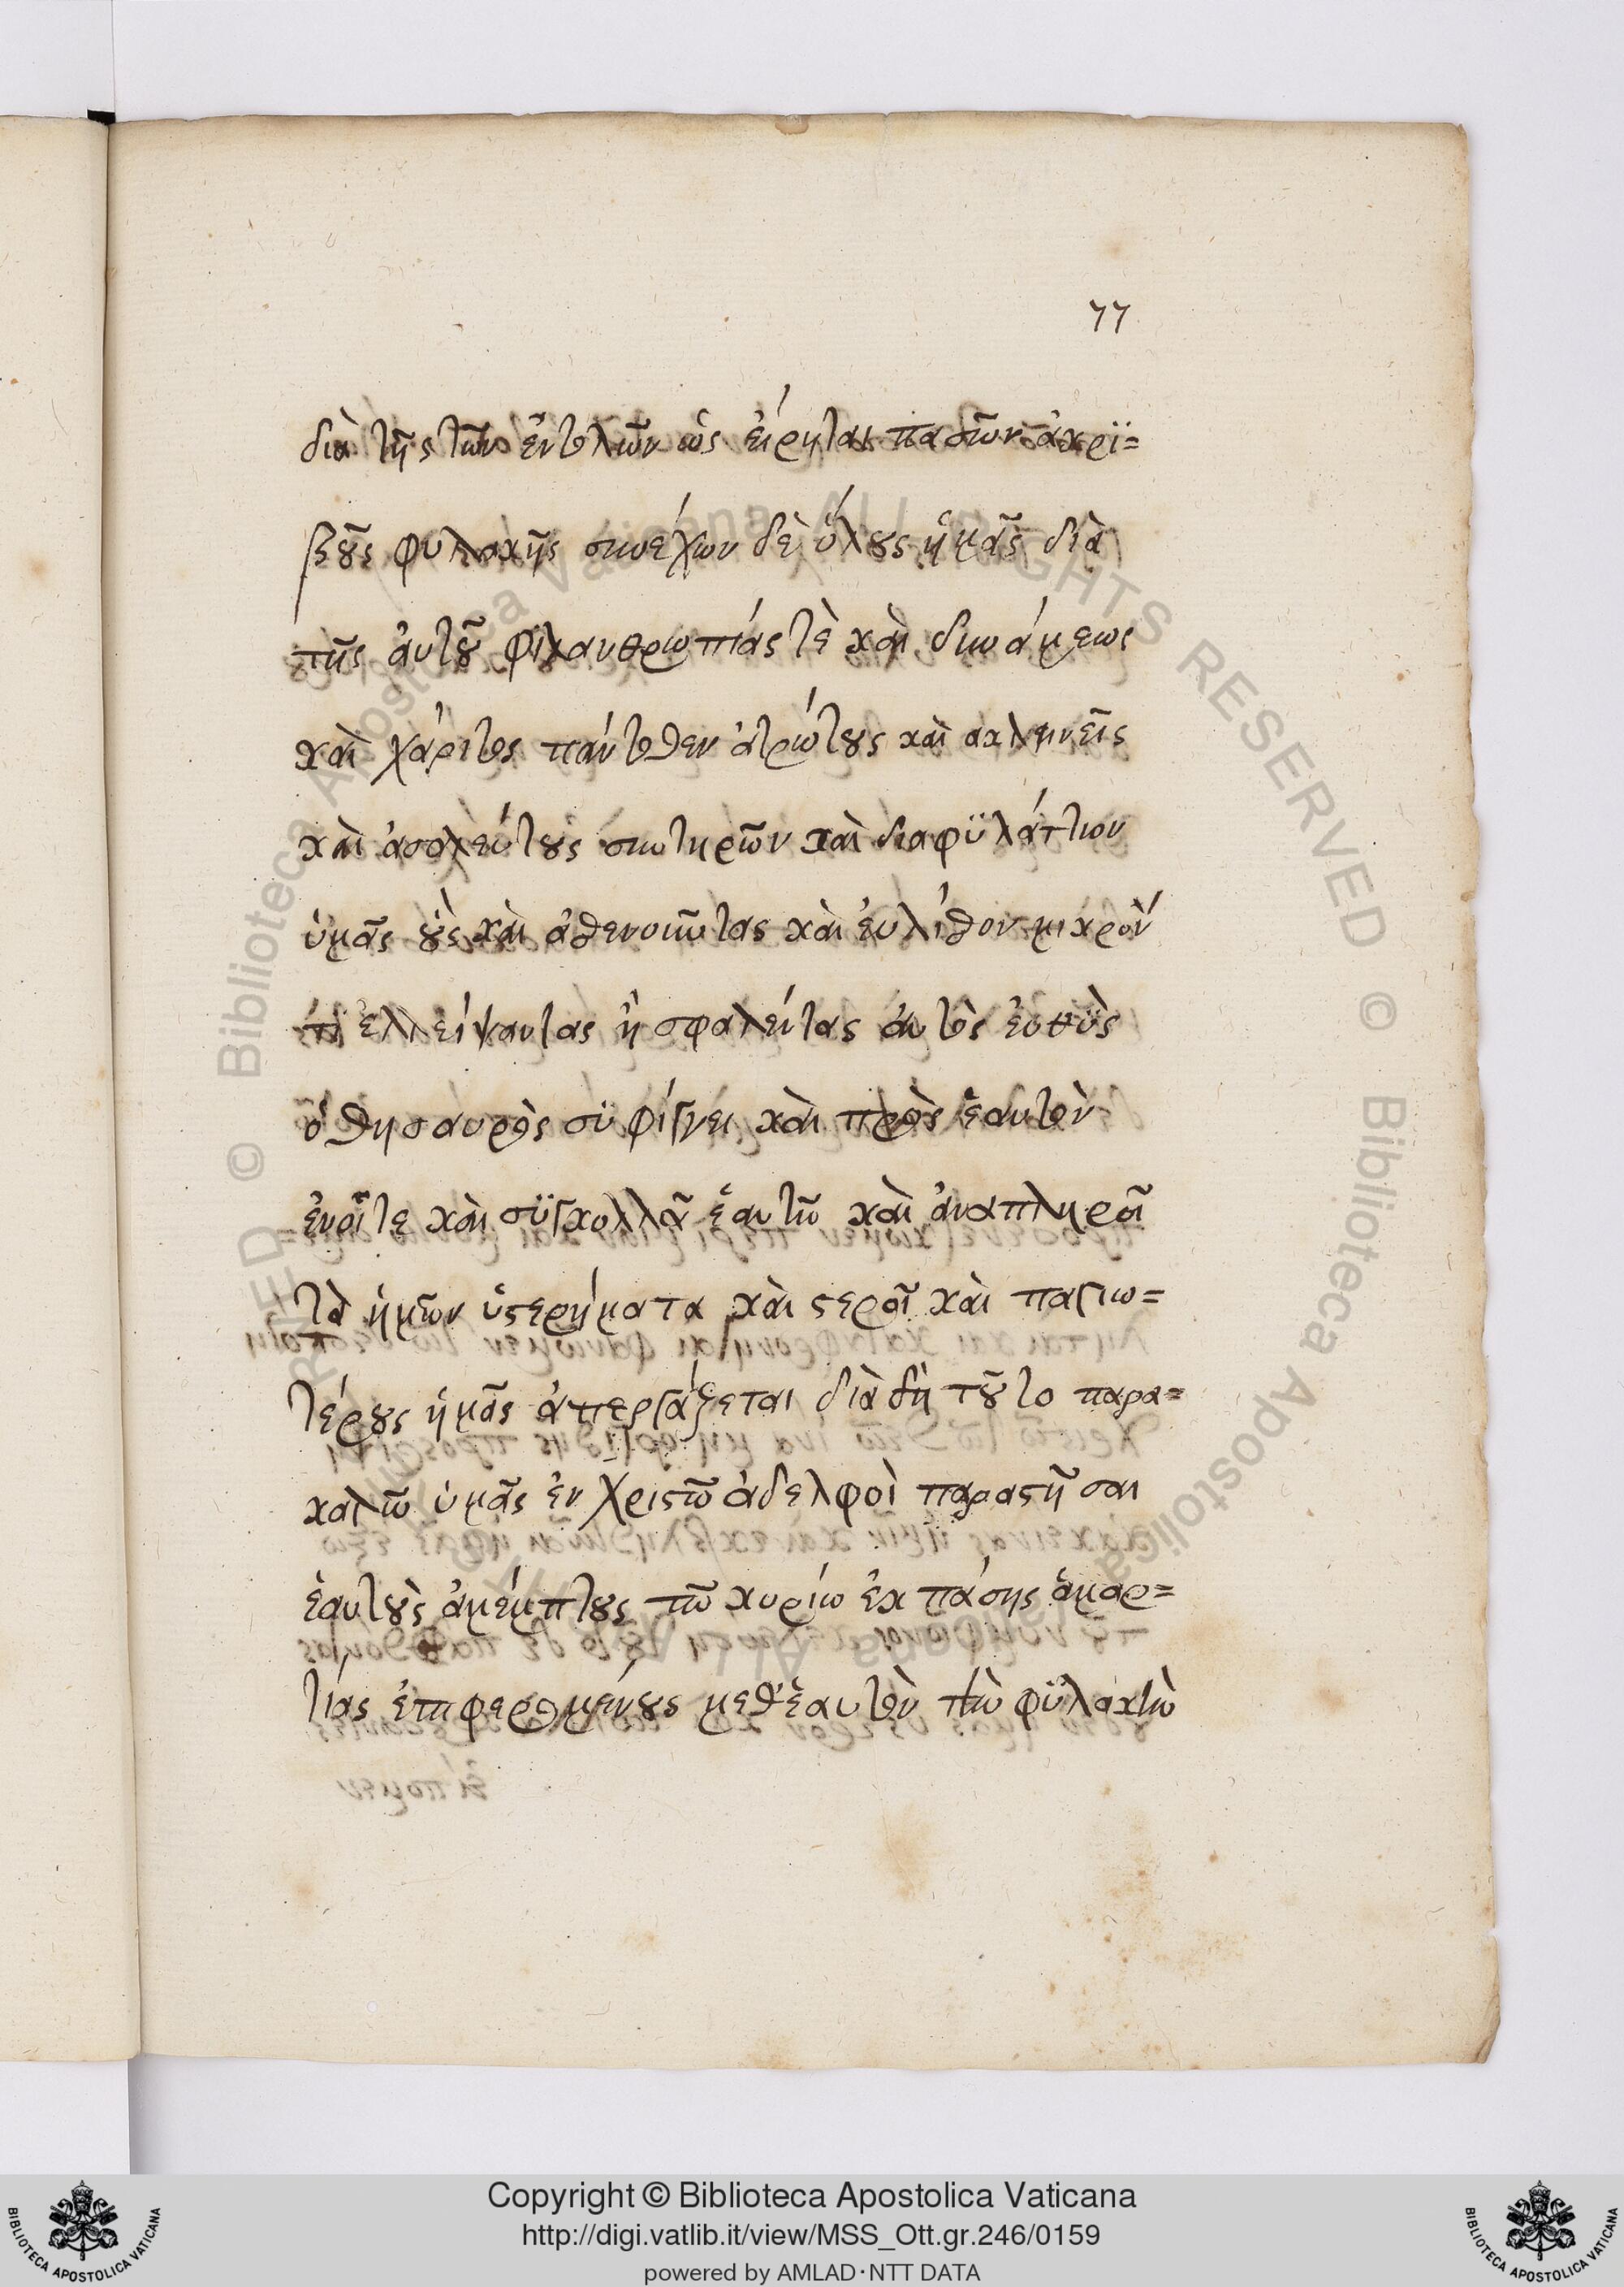 77
διὰ τῆς τῶν ἐντολῶν ὡς εἴρηται πασῶν ἀκρϊ=
βοῦς φυλακῆς συνέχων δὲ ὅλους ἡμᾶς διὰ
τῆς ἀυτοῦ φιλανθρωπίας τὲ καὶ δυνάμεως
καὶ χάριτος πάντοθεν ἀτρώτους καὶ ακλινεῖς
καὶ ἀσαλεύτους συντηρῶν καὶ διαφϋλάττων
ὑμᾶς οὓς καὶ ἀθενοῦντας καὶ ἐυλίθον μικρὸν
τὶ ἐλλείψαντας ἢ σφαλέντας ἀυτὸς ἐυθὺς
ὁ θησαυρὸς σϋφίγγει καὶ πρὸς ἑαυτὸν
ἑνοῖ τε καὶ σϋγκολλᾶ ἑαυτῶ καὶ ἀναπληροῖ
τὰ ἡμῶν ὑστερήματα καὶ στεροῖ καὶ παγιω=
τέρους ἡμᾶς ἀπεργάζεται διὰ δὴ τοῦτο παρα=
καλῶ ὑμᾶς ἐν χριστῶ ἀδελφοὶ παραστῆσαι
ἑαυτοὺς ἀμέμπτους τῶ κυρίω ἐκ πάσης ἁμαρ=
τίας ἐπιφερομένους μεθ' ἑαυτὸν τὴν φϋλακὴν
Copyright © Biblioteca Apostolica Vaticana
http://digi.vatlib.it/view/MSS_Ott.gr.246/0159
powered by AMLAD·NTT DATA
BIBLIOTECA APOSTOLICA VATICANA
BIBLIOTECA APOSTOLICA VATICANA